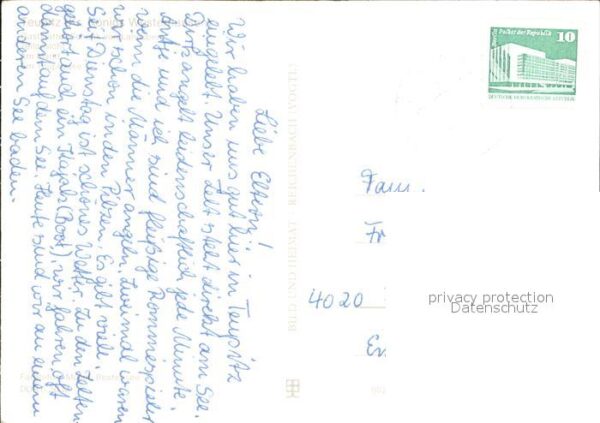 Liebe Eltern!
Wir haben uns gut hier in Teupitz
eingelebt. Unser Zelt steht direkt am See.
angelt leidenschaftlich jede Minute.
und ich sind fleißige Rommespieler
wenn die Männer angeln. Zweimal waren
wir schon in den Pilzen. Es gibt viele.
Seit Dienstag ist schönes Wetter. Zu den Zelten
gehört auch ein Kajak (Boot), wir fahren oft
damit auf dem See. Heute sind wir an einem
anderen See baden.
BILD UND HEIMAT REICHENBACH (VOGTL)
Palast der Republik
10
DEUTSCHE DEMOKRATISCHE REPUBLIK
Fam.
Fr
4020
privacy protection
Datenschutz